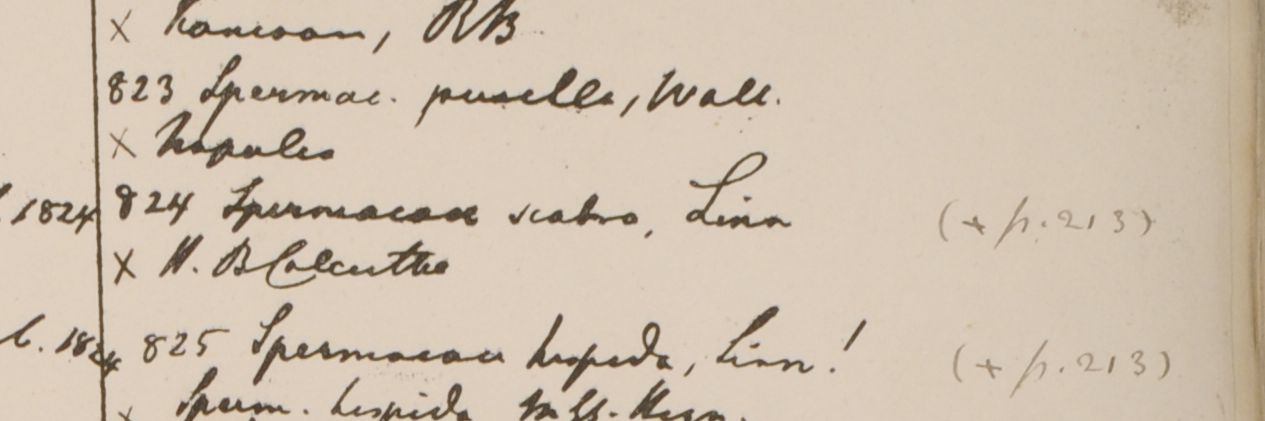 x RB
823 Spermac. pusilla, Wall.
x Napalia
1824 824 Spermacoce scabra, Linn (+ p. 213)
x H. B Calcutta
1824 825 Spermacoce hispida, Linn! (+ p. 213)
x Sperm. hispida